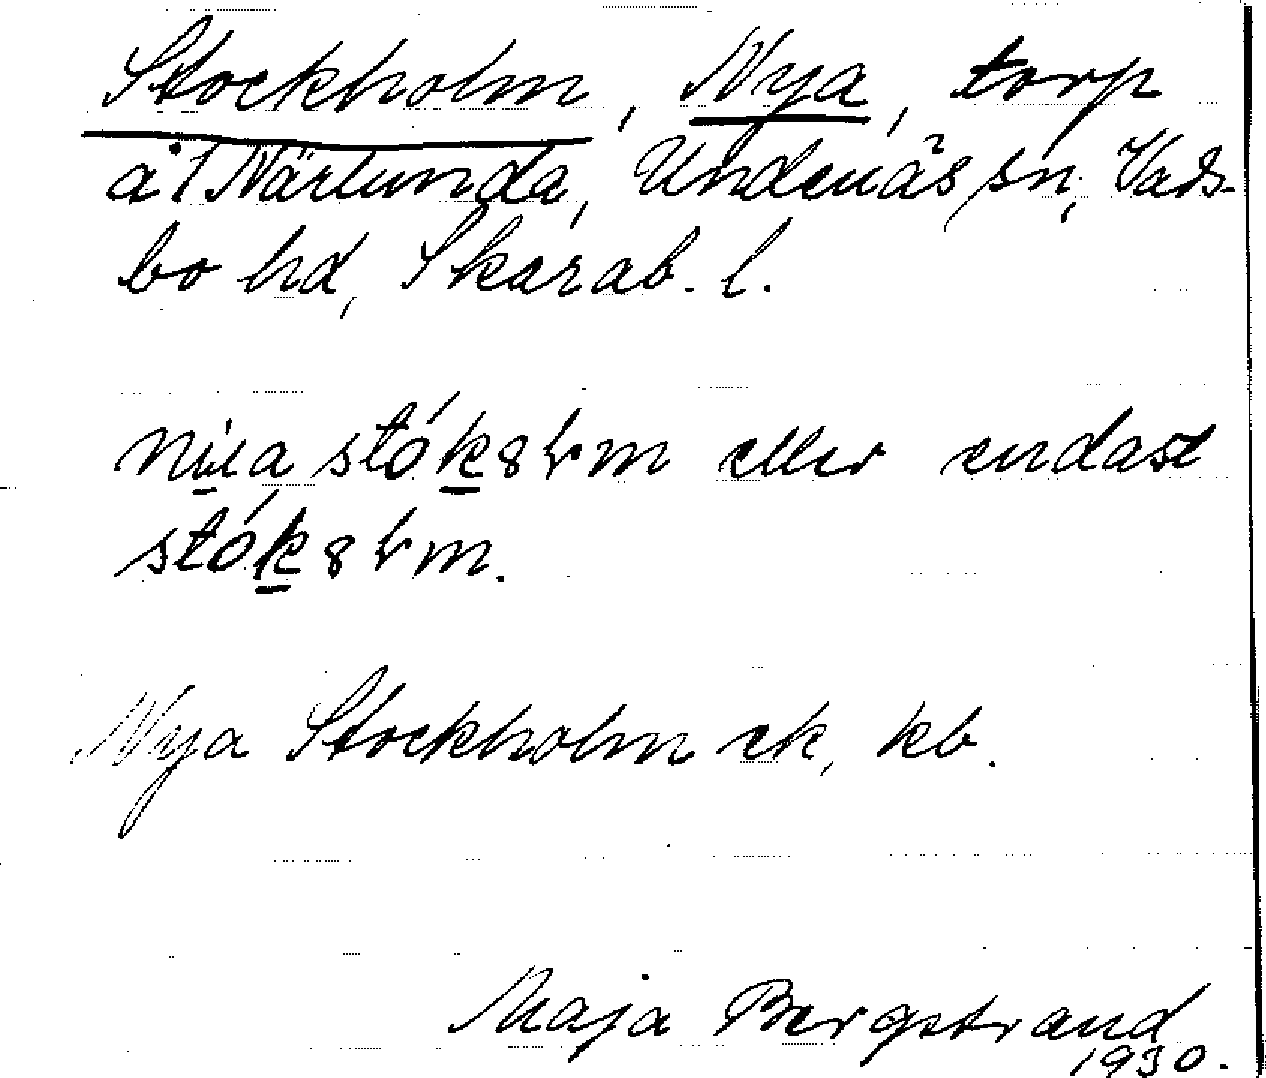 Stockholm, Nya, torp
å 1 Närlunda, Undenäs sn, Vads-
bo hd, Skarab. l.
eller endast
Nya Stockholm ek, kb.
Maja Bergstrand
1930.